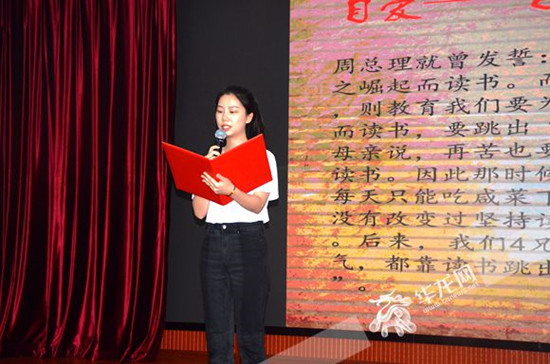 周总理就曾发誓：
之崛起而读书。而
，则教育我们要为
而读书，要跳出
母亲说，再苦也要
读书。因此那时候
每天只能吃咸菜下
没有改变过坚持让
。后来，我们4兄
气，都靠读书跳出
”。
华龙网